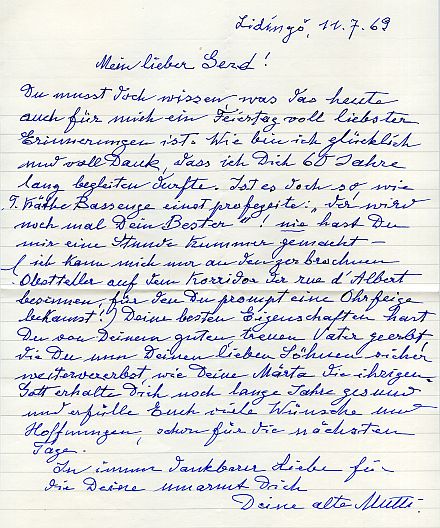 Lidingö, 11.7.69
Mein lieber Gerd!
Du musst doch wissen was das heute
auch für mich ein Feiertag voll liebster
Erinnerungen ist. Wie bin ich glücklich
und voll Dank, dass ich Dich 60 Jahre
lang begleiten durfte. Ist es doch so wie
T. Käthe Bassenge einst profezeite: „der wird
noch mal Dein Bester"! nie hast Du
mir eine Stunde Kummer gemacht –
(ich kann mich nur an den zerbrochnen
Obstteller auf dem Korridor der rue d'Albert
besinnen, für den Du prompt eine Ohrfeige
bekamst!) Deine besten Eigenschaften hast
Du von Deinem guten treuen Vater geerbt,
die Du nun Deinen lieben Söhnen sicher
weitervererbst wie Deine Märta die ihrigen.
Gott erhalte Dich noch lange Jahre gesund
und erfülle Euch viele Wünsche und
Hoffnungen, schon für die nächsten
Tage.
In immer dankbarer Liebe für
die Deine umarmt Dich
Deine alte Mutti.